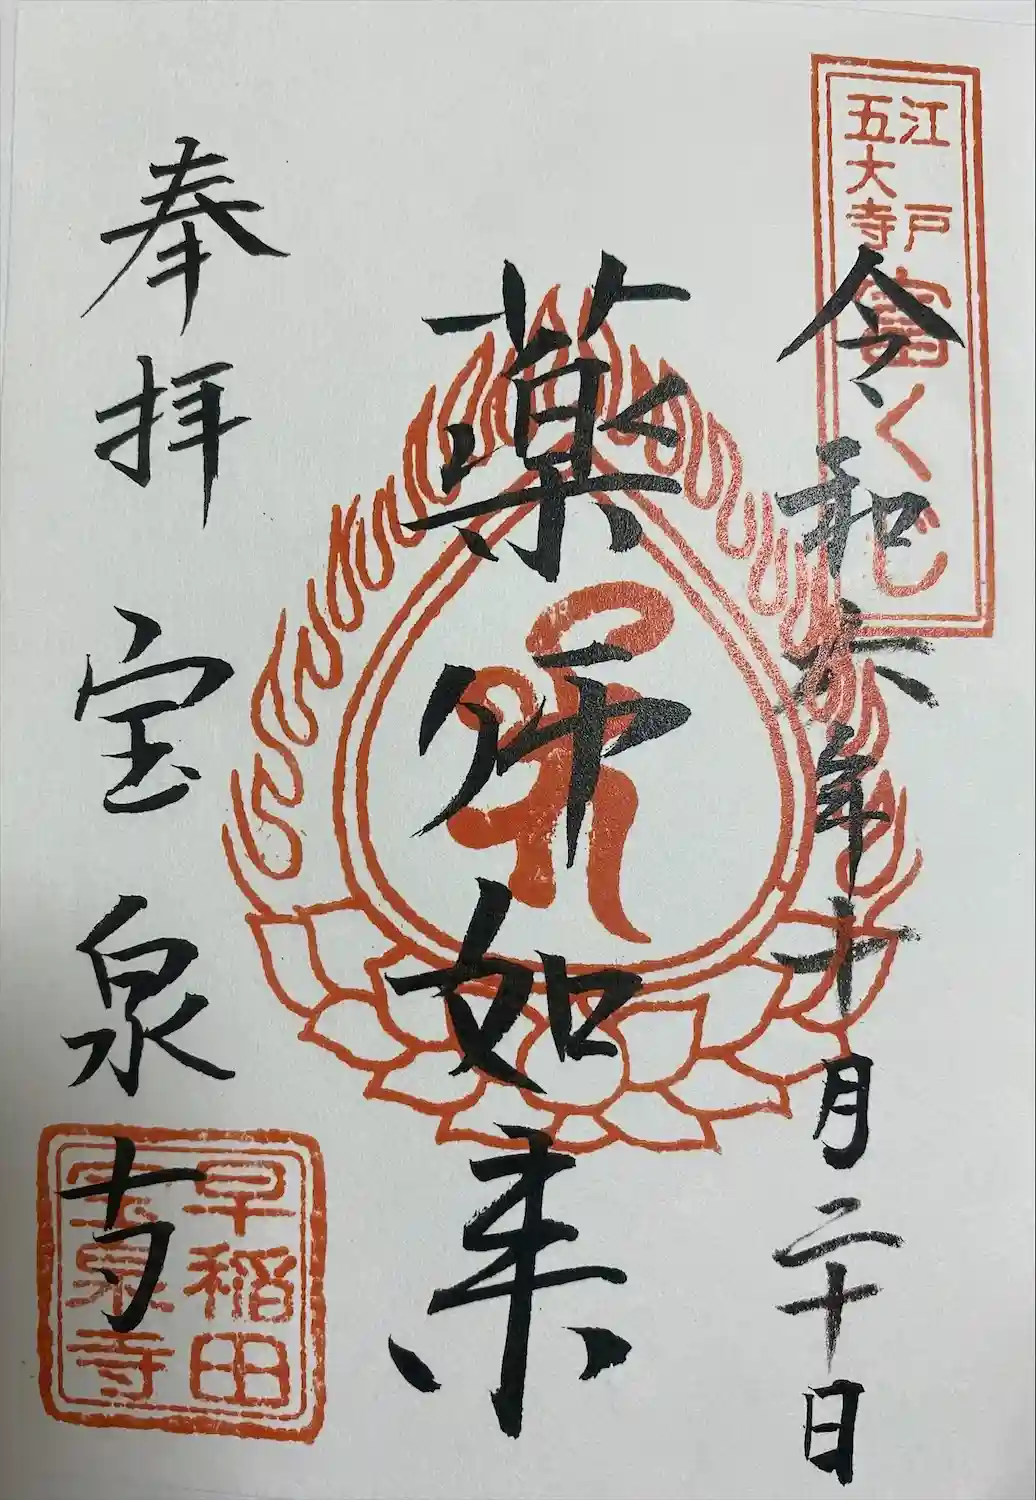 江戸
五大寺
富くじ
令和六年十月二十日
薬師如来
奉拝 宝泉寺
早稲田
宝泉寺